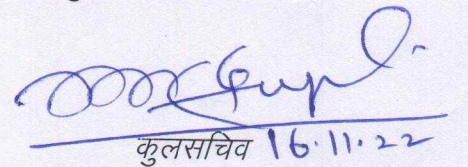 कुलसचिव 16.11.22